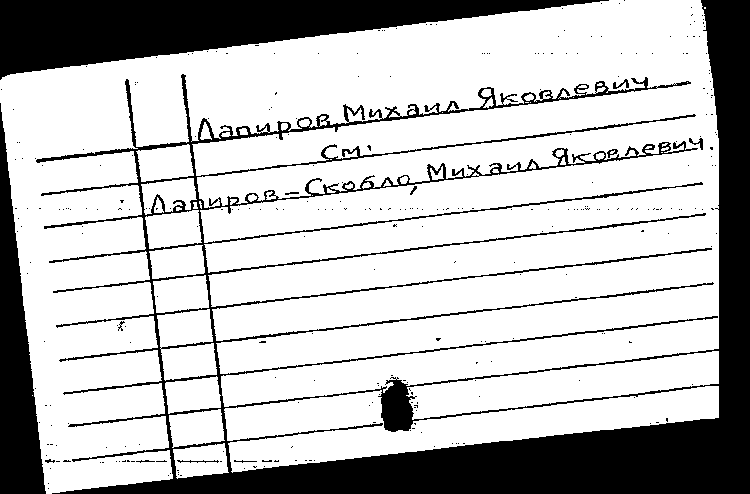 Лапиров, Михаил Яковлевич
см.
Лапиров-Скобло, Михаил Яковлевич.